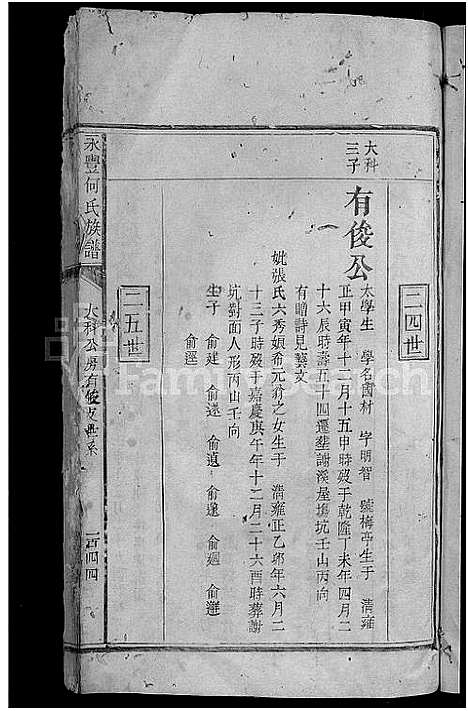 二四世
大科
三子
有俊公
太學生 學名國材 字明智 號梅亭生于 清雍
正甲寅年十二月十五申時歿于乾隆丁未年四月二
十六辰時壽五十四遷塟謝溪屋塲坑壬山丙向
有贈詩見藝文
妣張氏六秀娘希元 之女生于 清雍正乙卯年六月二
十三子時歿于嘉慶庚午年十二月二十六酉時葬謝
坑對面人形丙山壬向
生子 俞建 俞遠 俞 俞 俞迴 俞
俞
二五世
永豐何氏族譜
大科公房有俊支世系
一百四四
FamilySearch